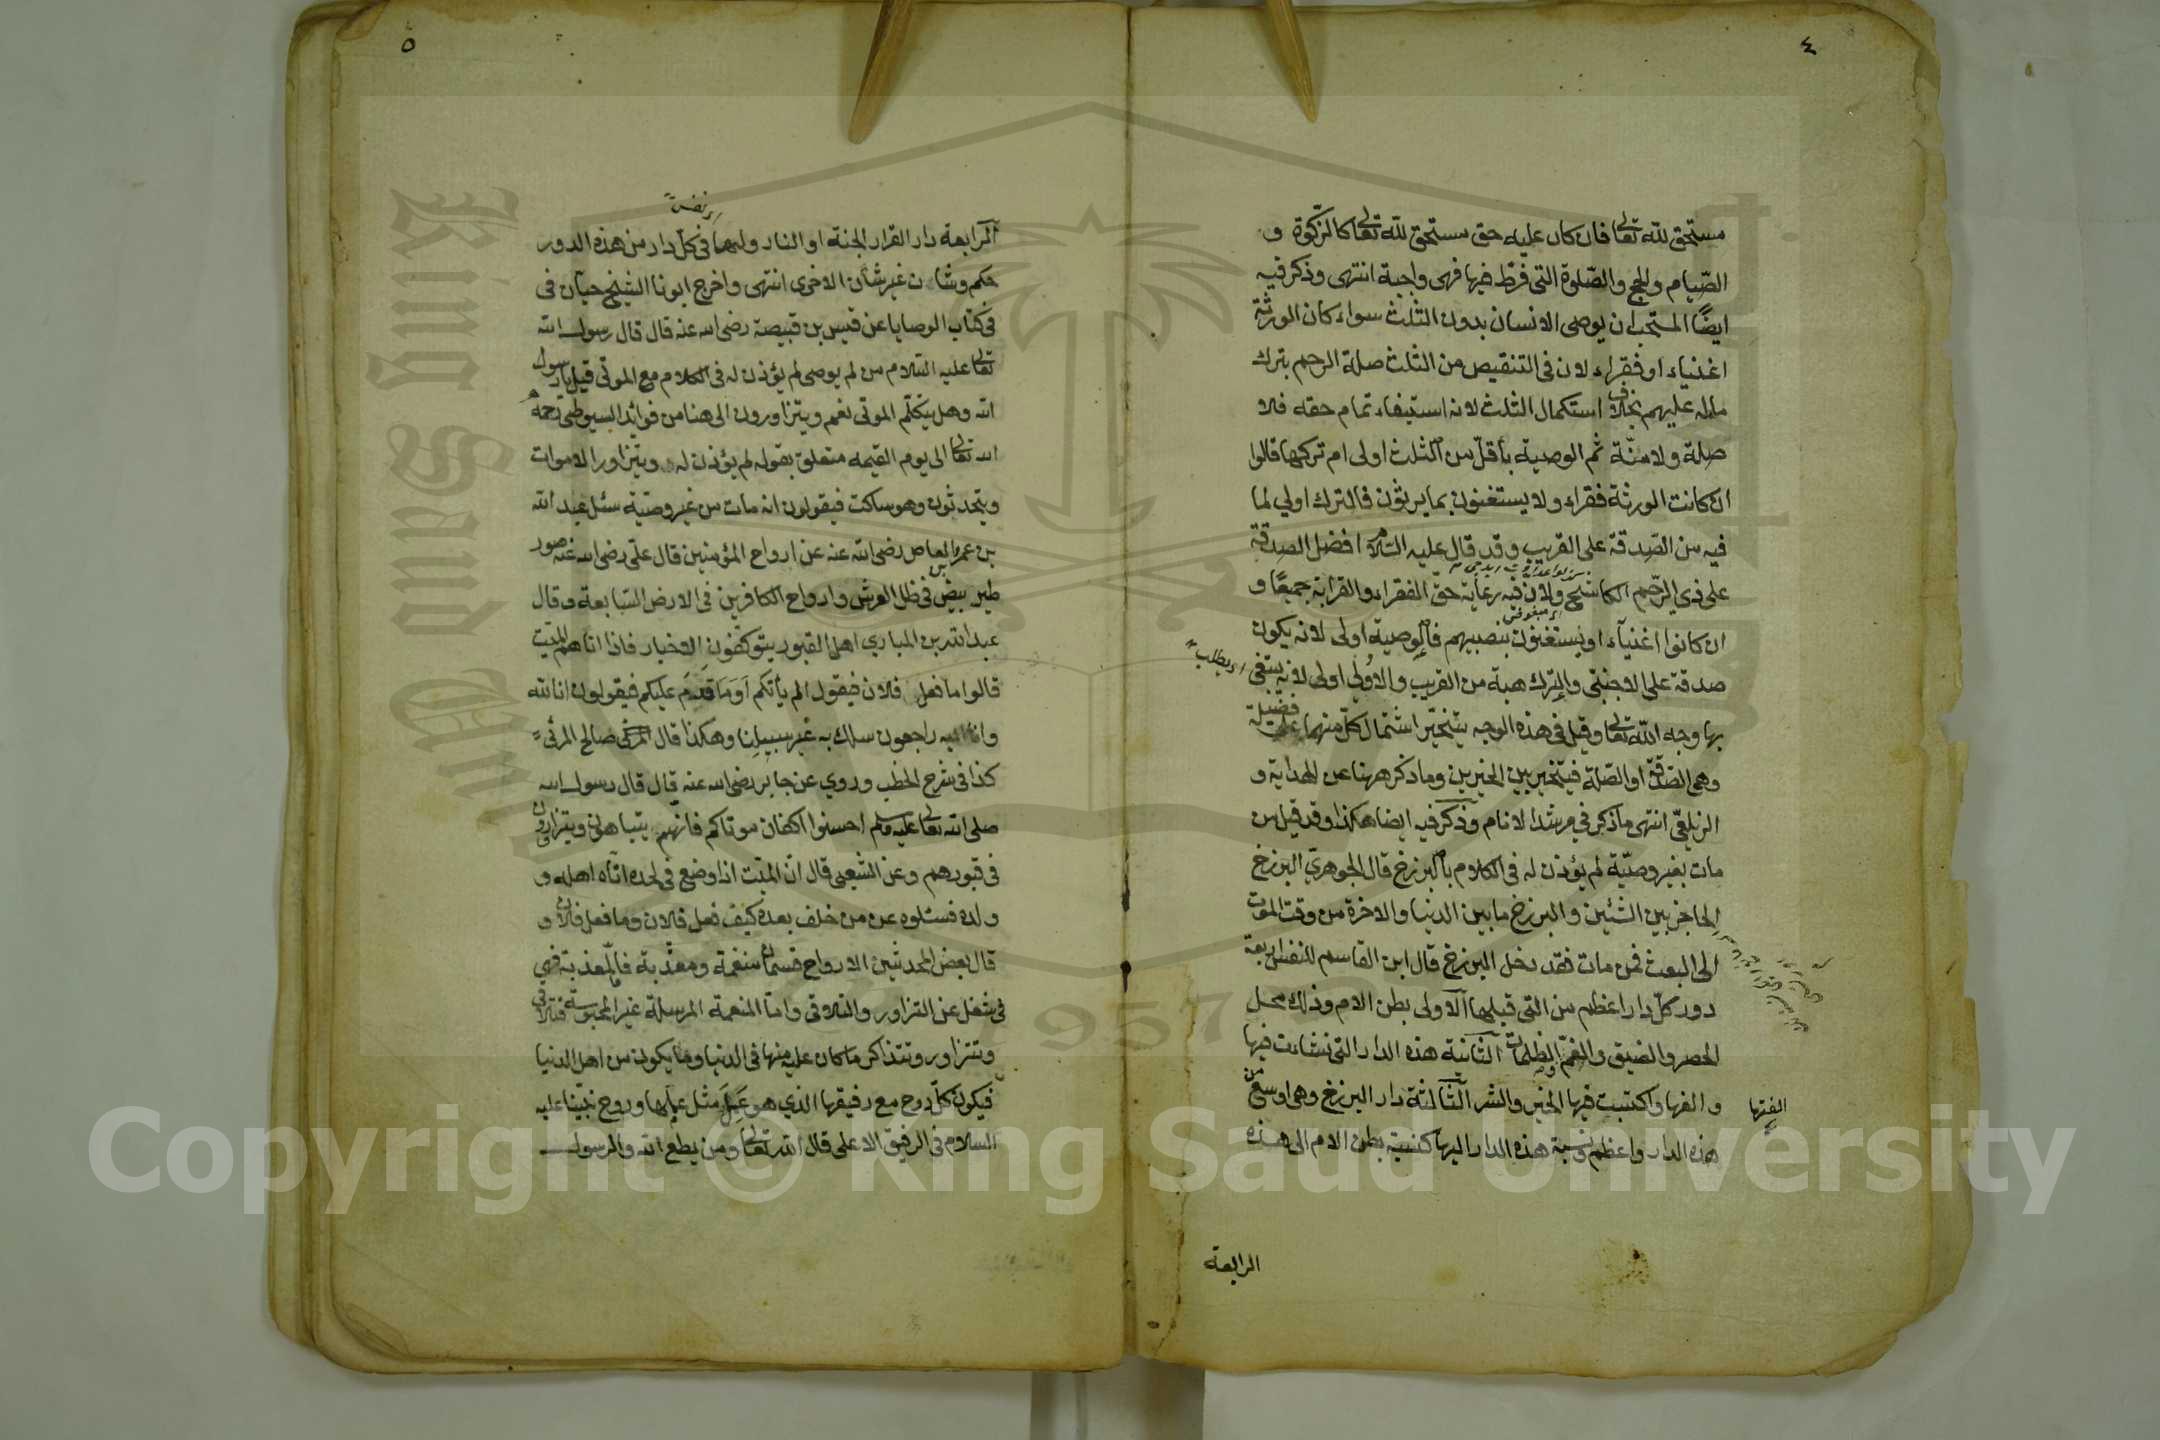 ٤
مستحق لله تعالى فان كان عليه حق مستحق لله تعالى كالزكوة و
الصيام والحج والصلوة التى فرط فيها فهى واجبة انتهى وذكر فيه
ايضًا المستحب ان يوصى الانسان بدون الثلث سواء كان الورثة
اغنياء او فقراء لان فى التنقيص من الثلث صلة الرحم بترك
ماله عليهم بخلاف استكمال الثلث لانه استيفاء تمام حقه فلا
صلة ولا منّة ثم الوصية بأقلّ من الثلث اولى ام تركها قالوا
ان كانت الورثة فقراء ولا يستغنون بما يرثون فالترك اولي لما
فيه من الصدقة على القريب وقد قال عليه السلام افضل الصدقة
على ذي الرحم الكاشح ولان فيه رعاية حقّ الفقراء والقرابة جميعًا و
ان كانوا اغنيآء او يستغنون بنصيبهم فالوصية اولى لانه يكون
صدقة على الاجنبى والترك هبة من القريب والاولي اولى لانه يبتغى
اى يطلب
بها وجه الله تعالى وقيل فى هذه الوجه يتخيّر اشتمال كلّ منهما على فضيلة
وهى الصدقة او الصلة فيتخير بين الخيرين وما ذكر ههنا عن الهداية و
الزيلعى انتهى ما ذكر في مرشد الانام وذكر فيه ايضا هكذا وقد قيل من
مات بغير وصيّة لم يؤذن له فى الكلام بالبرزخ قال الجوهري البرزخ
الحاجز بين الشئين والبرزخ ما بين الدنيا والاخرة من وقت الموت
الى البعث فمن مات فقد دخل البرزخ قال ابن القاسم للنفس اربعة
دور كلّ دار اعظم من التى قبلها الاولى بطن الام وذلك محل
الحصر والضيق والغمّ والظلمات الثانية هذه الدار التى نشات فيها
والفها واكتسبت فيها الخير والشر الثالثة دار البرزخ وهى اوسع من
الفتها
هذه الدار واعظم ونسبة هذه الدار اليها كنسبة بطن الام الى هذه
الرابعة
٥
الرابعة دار القرار الجنة او النار ولها فى كلّ دار من هذه الدور
حكم وشان غير شأن الاخرى انتهى واخرج ابونا الشيخ حيان فى
فى كتاب الوصايا عن قيس بن قبيصة رضى الله عنه قال قال رسول الله
تعالى عليه السلام من لم يوصى لم يؤذن له فى الكلام مع الموتى قيل يا رسول
الله وهل يتكلّم الموتى نعم ويتزاورون الى هنا من فوائد السيوطى رحمه
الله تعالى الى يوم القيمه متعلق بقوله لم يؤذن له ويتزاور الاموات
ويتحدثون وهو ساكت فيقولون انه مات من غير وصيّة سئل عبد الله
بن عمرو العاص رضى الله عنه عن ارواح المؤمنين قال على رضى الله عنه صور
طير بيض فى ظل العرش وارواح الكافرين فى الارض السّابعة وقال
عبد الله بن المباري اهل القبور يتوكفون الاخبار فاذا اتاهم الميّت
قالوا ما فعل فلان فيقول الم يأتكم اَوَمَا قدِمَ عليكم فيقولون انا لله
وانا اليه راجعون سلك به غير سبيلنا وهكذا قال صالح المرئي
كذا فى شرح الخطب وروي عن جابر رضى الله عنه قال قال رسول الله
صلى الله تعالى عليه وسلم احسنوا اكفان موتاكم فانّهم يتباهون ويتزاورون
فى قبورهم وعن الشعبى قال انّ الميّت اذا وضع فى لحده اتاه اهله و
ولده فسئلوه عن من خلف بعده كيف فعل فلان وما فعل فلان و
قال بعض المحدثين الارواح قسمان منعمة ومعذّبة فالمعذبة فهي
فى شغل عن التزاور والتلاقى وامّا المنعمة المرسلة غير المحبوسة فتلاقى
وتتزاور وتتذاكر ما كان عليه منها فى الدنيا وما يكون من اهل الدنيا
فيكون كلّ روح مع رفيقها الذي هو عَمِلَ مثل عملها وروح نبيّنا عليه
السلام فى الرفيق الاعلى قال الله تعالى ومن يطع الله والرسول
King Saud University
1957
Copyright © King Saud University